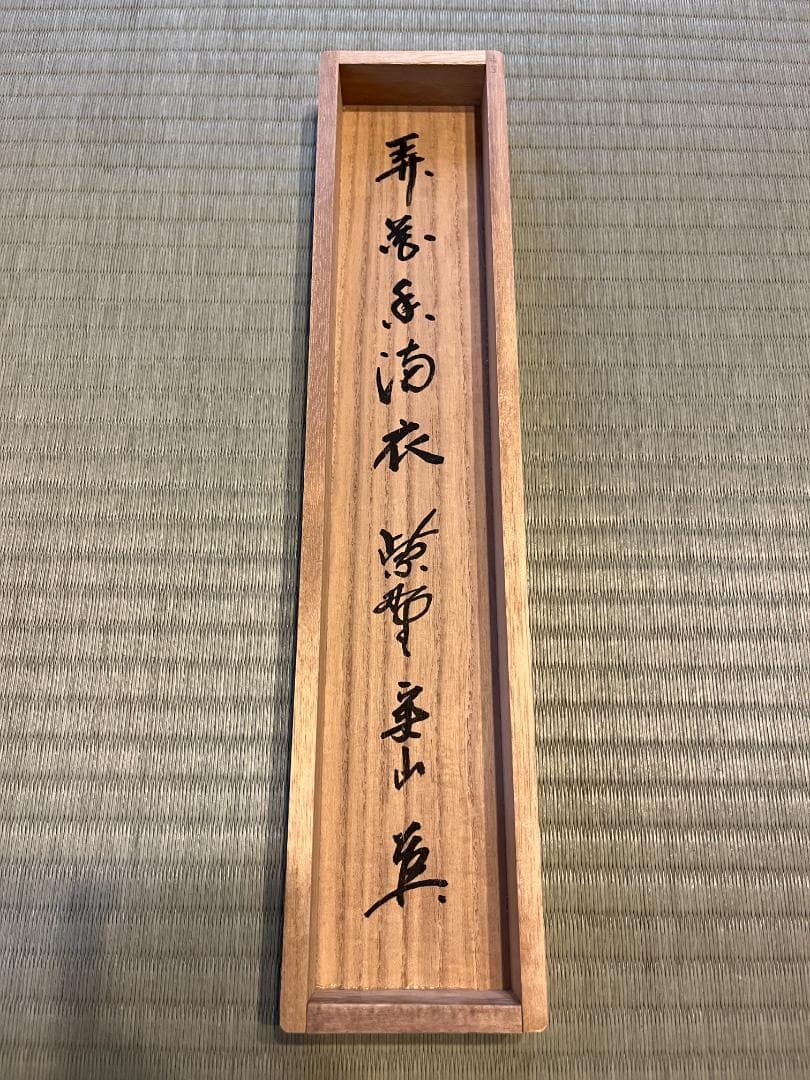 弄花香満衣 紫野 山